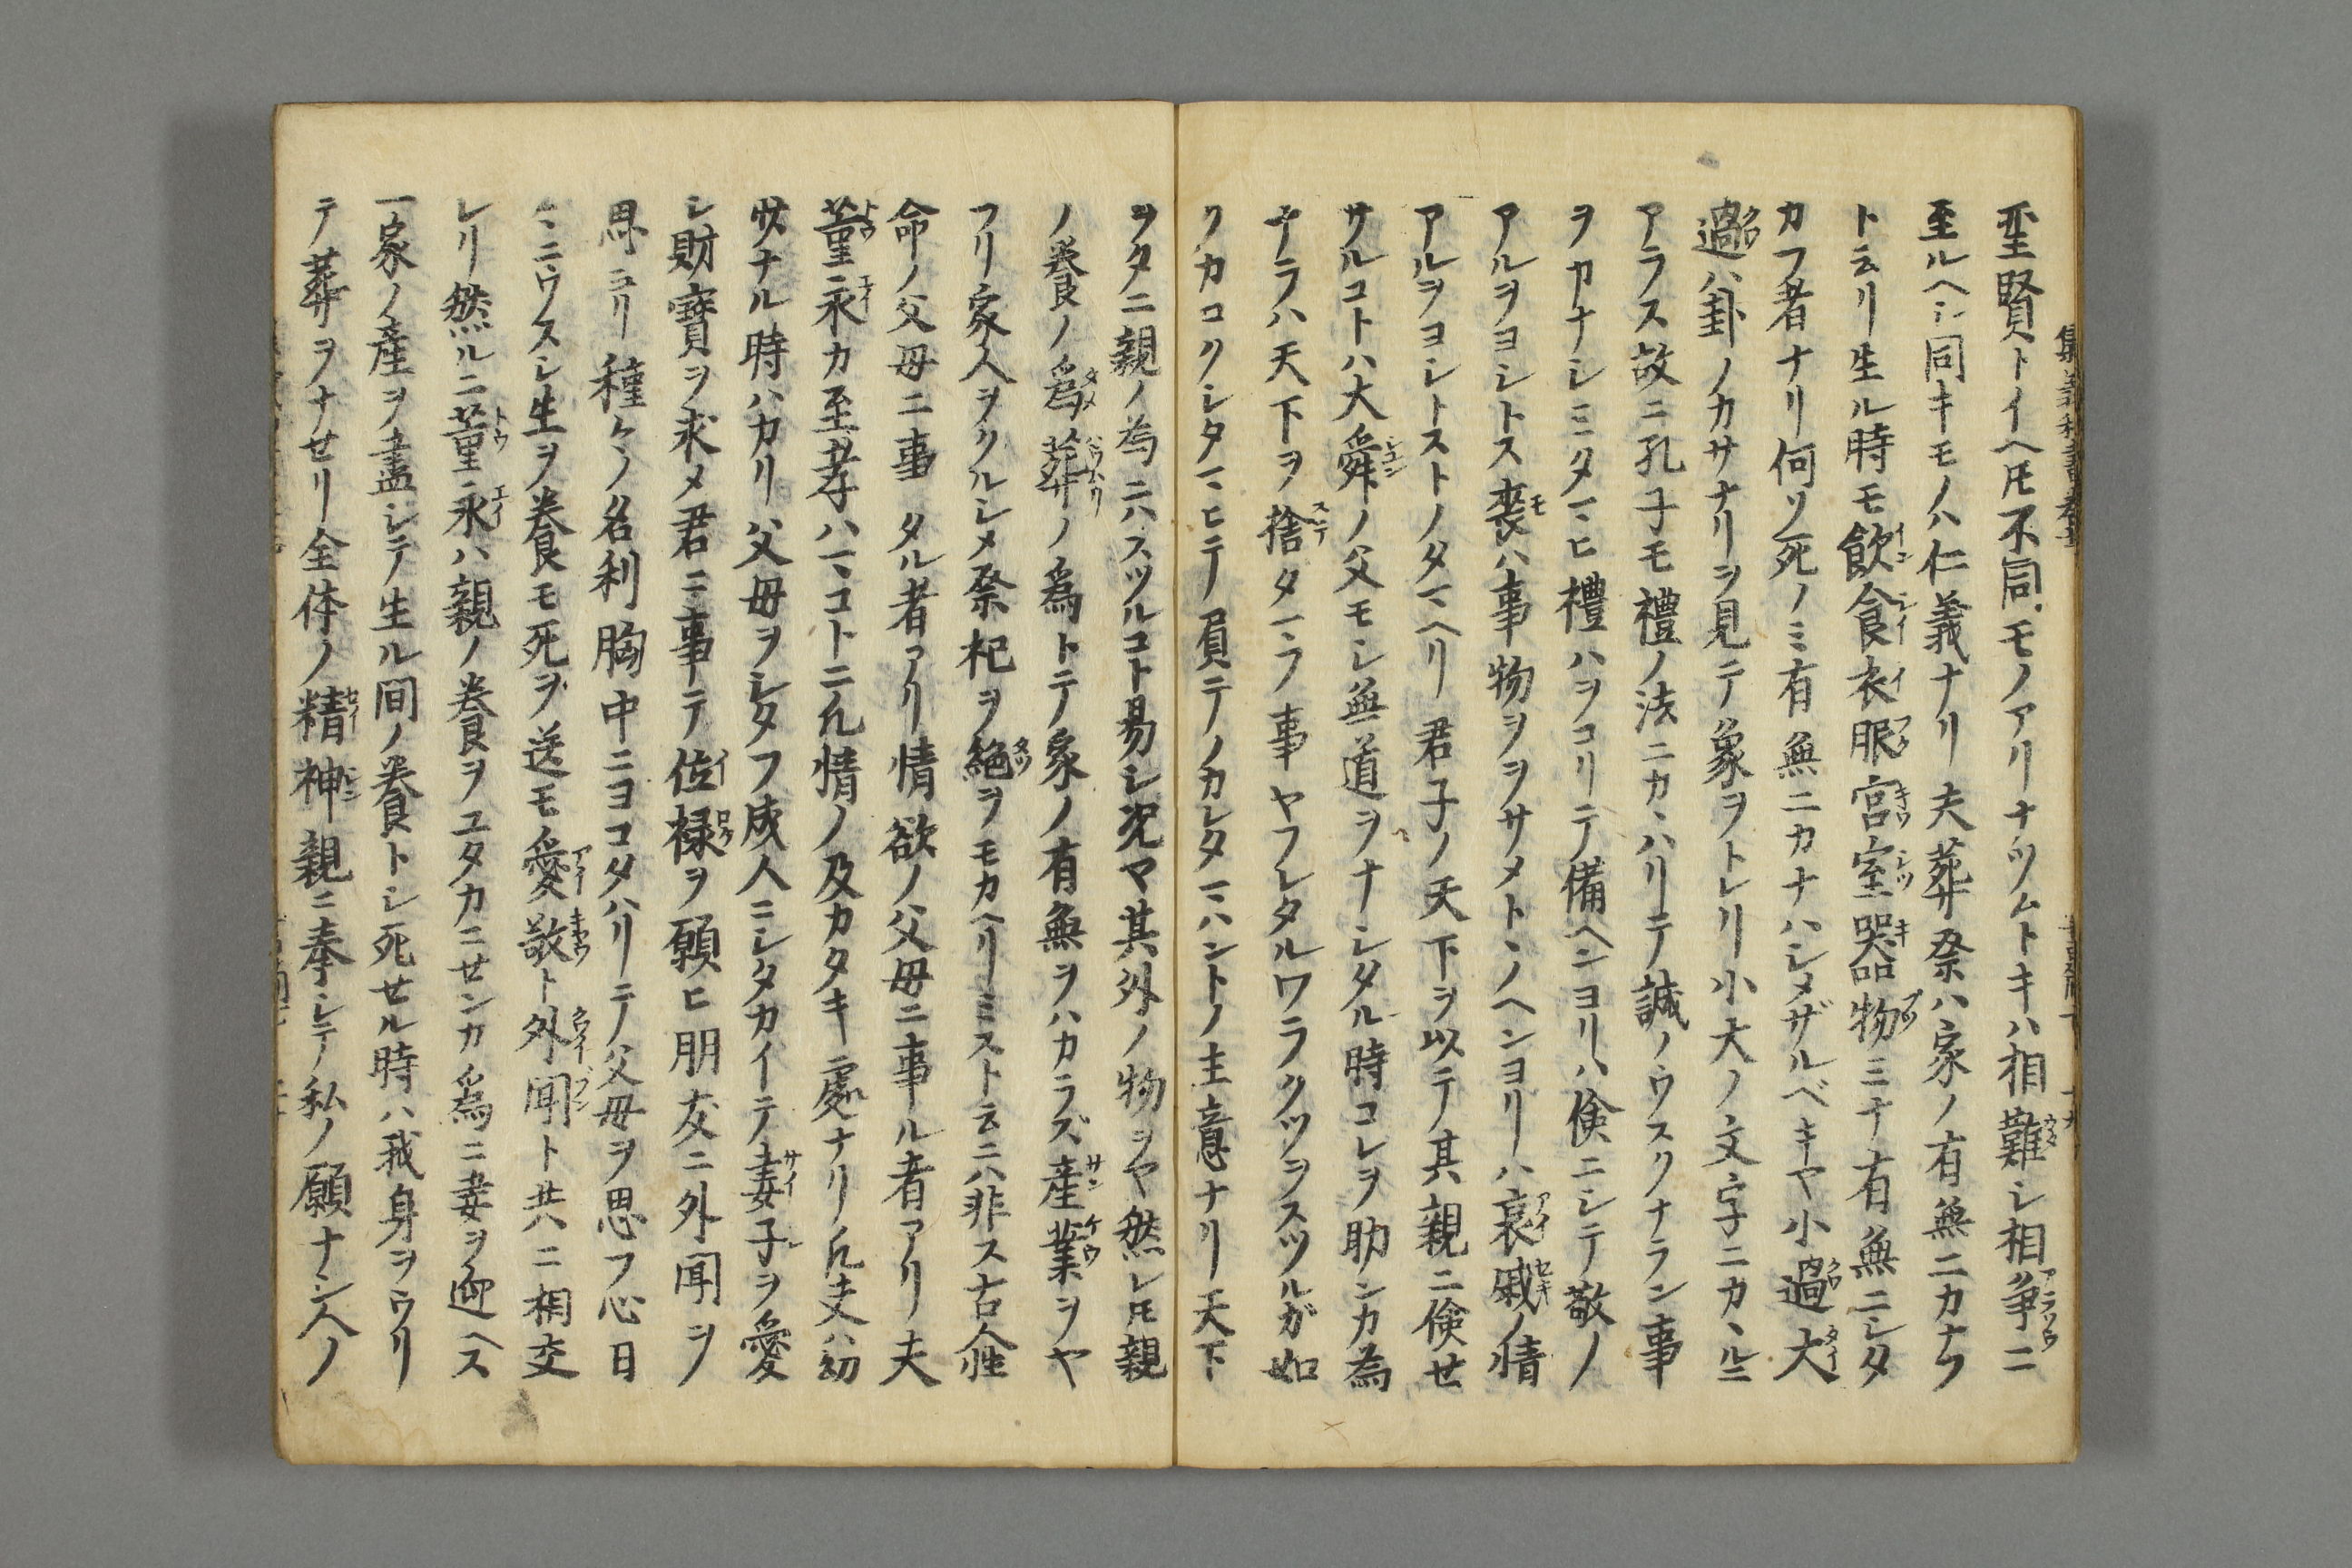 聖賢トイヘ𪜈不同モノアリナツムトキハ相難シ相争ニ
至ルヘシ同キモノハ仁義ナリ夫葬祭ハ家ノ有無ニカナフ
ト云リ生ル時モ飲食衣服宮室器物ミナ有無ニシタ
カフ者ナリ何ソ死ノミ有無ニカナハシメザルベキヤ小過大
過ハ卦ノカサナリヲ見テ象ヲトレリ小大ノ文字ニカヽルニ
アラス故ニ孔子モ禮ノ法ニカヽハリテ誠ノウスクナラン事
ヲカナシミタマヒ禮ハヲコリテ備ヘンヨリハ倹ニシテ敬ノ
アルヲヨシトス喪ハ事物ヲヲサメトヽノヘンヨリハ哀戚ノ情
アルヲヨシトストノタマヘリ君子ノ天下ヲ以テ其親ニ倹せ
サルコトハ大舜ノ父モシ無道ヲナシタル時コレヲ助ンカ為
ナラハ天下ヲ捨タマフ事ヤフレタルワラクツヲスツルガ如
クカロクシタマヒテ負テノカレタマハントノ主意ナリ天下
ヲタニ親ノ為ニハスツルコト易シ况マ其外ノ物ヲヤ然レ𪜈親
ノ養ノ爲葬ノ爲トテ家ノ有無ヲハカラズ産業ヲヤ
フリ家人ヲクルシメ祭祀ヲ絶ヲモカヘリミスト云ニハ非ス古今性
命ノ父母ニ事タル者アリ情欲ノ父母ニ事ル者アリ夫
董永カ至孝ハマコトニ凡情ノ及カタキ處ナリ凡夫ハ幼
サナル時ハカリ父母ヲシタフ成人ニシタカイテ妻子ヲ愛
シ財寶ヲ求メ君ニ事テ位禄ヲ願ヒ朋友ニ外聞ヲ
思ヨリ種々ノ名利胸中ニヨコタハリテ父母ヲ思フ心日
〻ニウスシ生ヲ養モ死ヲ送モ愛敬ト外聞ト共ニ相交
レリ然ルニ董永ハ親ノ養ヲユタカニせンカ爲ニ妻ヲ迎ヘス
一家ノ産ヲ盡シテ生ル間ノ養トシ死せル時ハ我身ヲウリ
テ葬ヲナせリ全体ノ精神親ニ奉シテ私ノ願ナシ人ノ